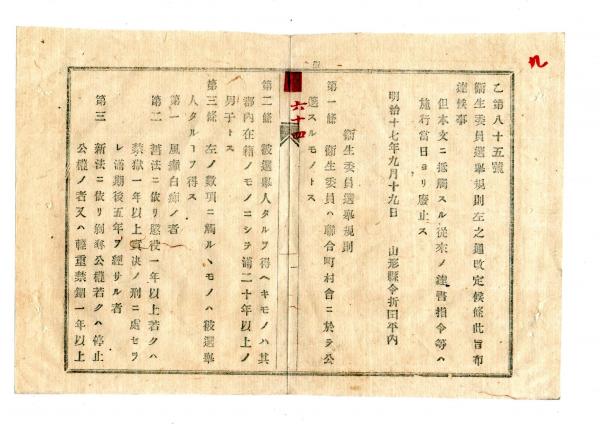 九
乙第八十五號
衞生委員選擧規則左之通改定候條此旨布
達候事
但本文ニ抵觸スル從來ノ達書指令等ハ
施行當日ヨリ廢止ス
明治十七年九月十九日 山形縣令折田平內
六十四
衞生委員選擧規則
第一條 衞生委員ハ聯合町村會ニ於テ公
選スルモノトス
第二條 被選擧人タルヲ得ヘキモノハ其
郡內在籍ノモノニシテ滿二十年以上ノ
男子トス
第三條 左ノ數項ニ觸ルヽモノハ被選擧
人タルヲ得ス
第一 風癲白痴ノ者
第二 舊法ニ依リ懲役一年以上若クハ
禁獄一年以上實決ノ刑ニ處セラ
レ滿期後五年ヲ經サル者
第三 新法ニ依リ剝奪公權若クハ停止
公權ノ者又ハ輕重禁錮一年以上